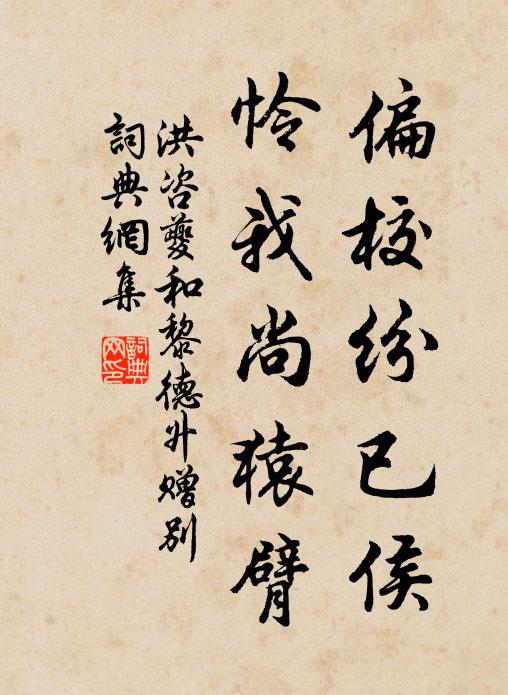 偏校纷已侯
怜我尚猿臂
洪咨夔和黎德升赠别
词典網集
詞典
网印